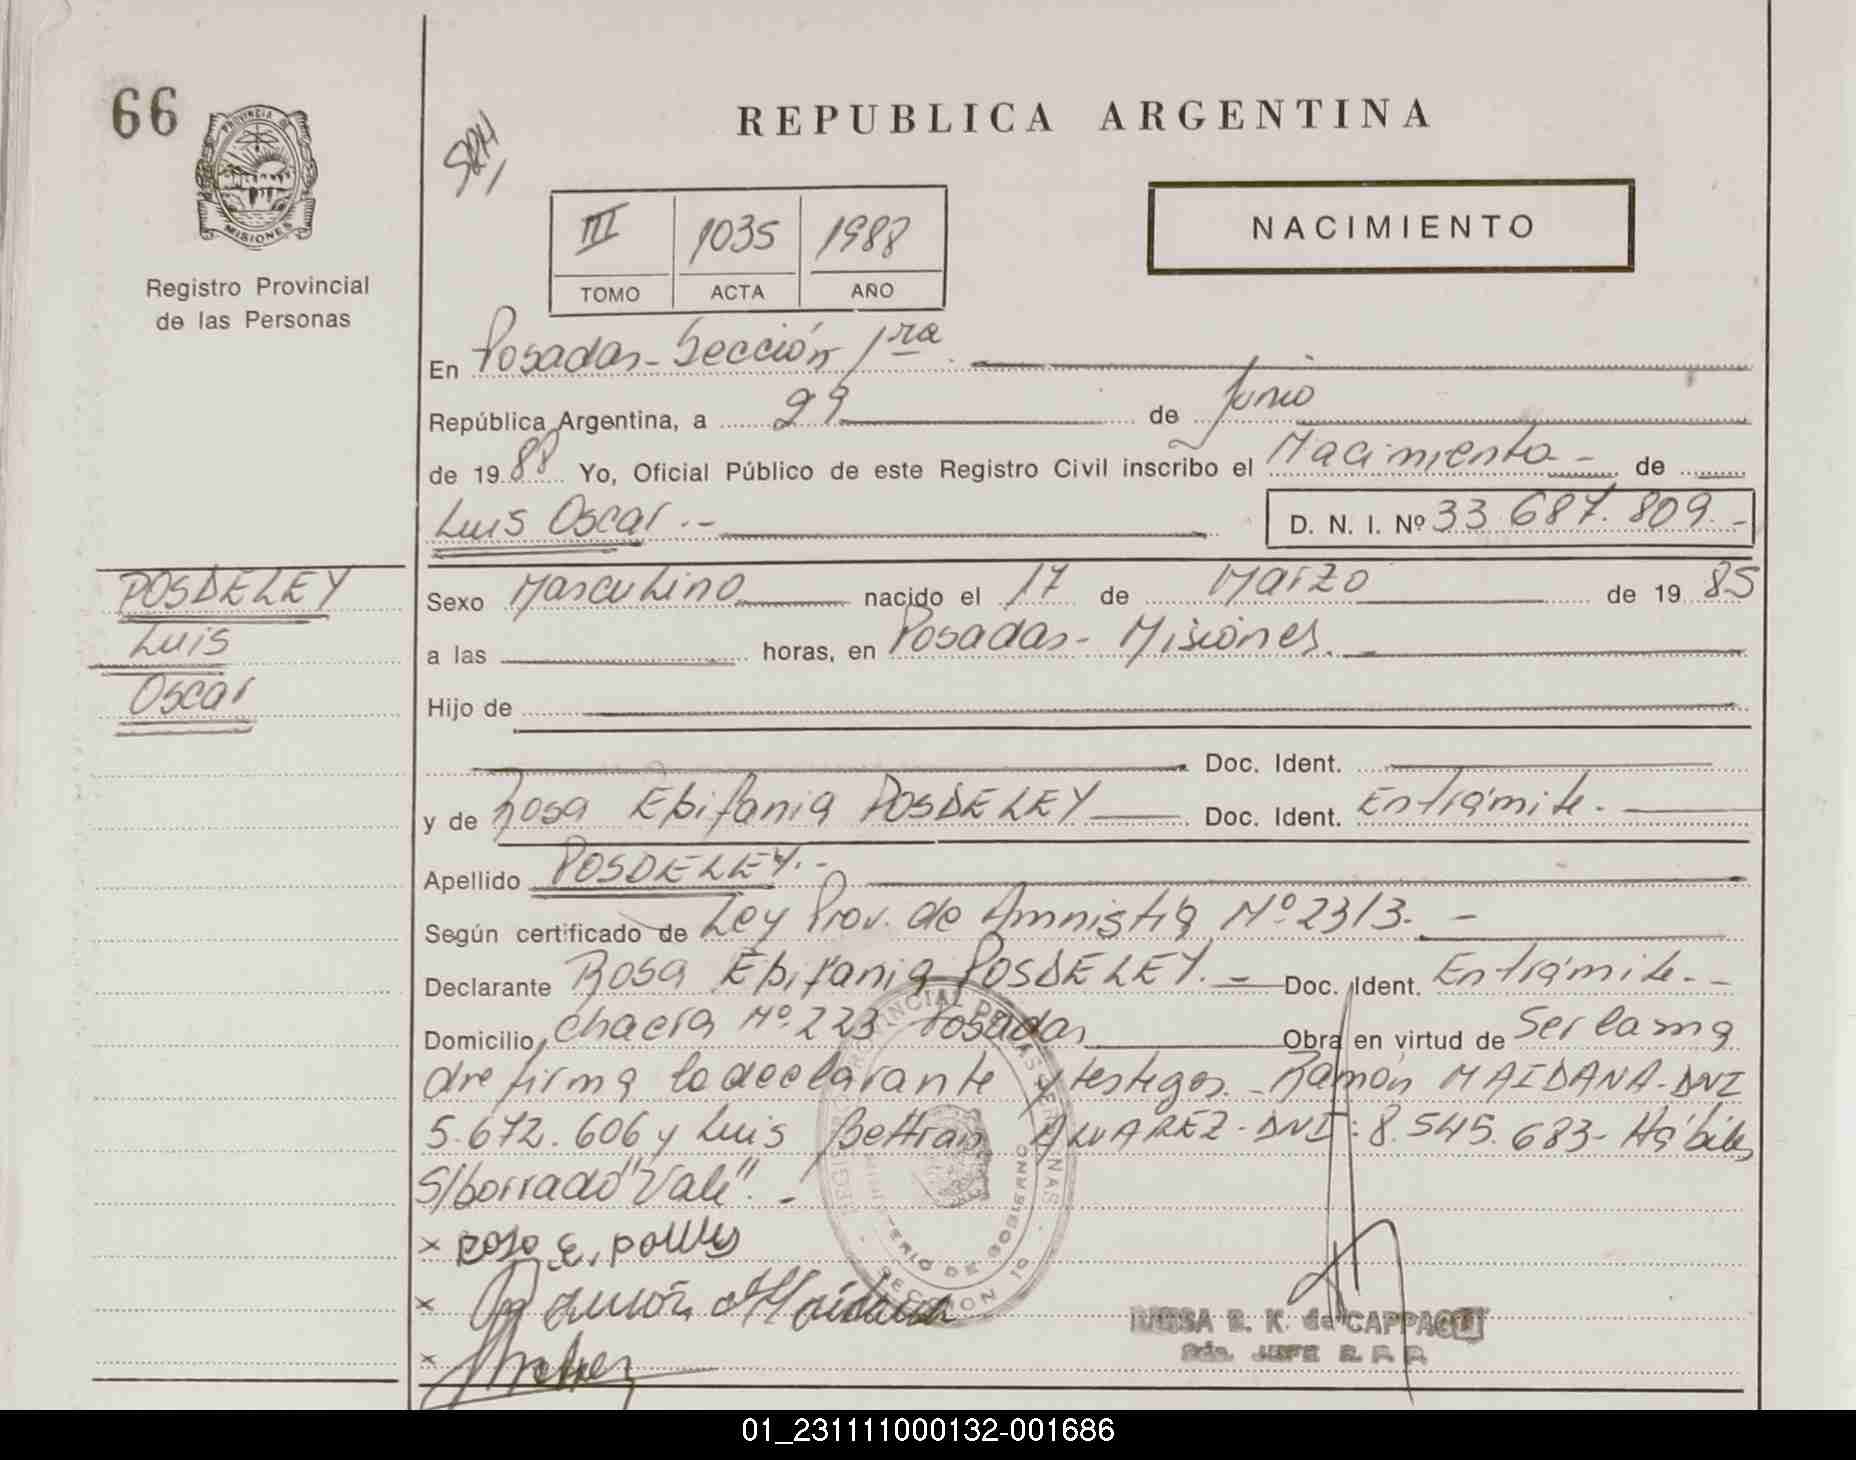 66
PROVINCIA DE
MISIONES
Registro Provincial
de las Personas
REPUBLICA ARGENTINA
NACIMIENTO
III 1035 1988
TOMO ACTA AÑO
En Posadas - Sección 1ra
República Argentina, a 29 de Junio
de 1988 Yo, Oficial Público de este Registro Civil inscribo el Nacimiento - de
Luis Oscar.-- D. N. I. Nº 33.687.809.-
POSDELEY
Luis
Oscar
Sexo Masculino nacido el 17 de Marzo de 1985
a las horas, en Posadas - Misiones.
Hijo de
Doc. Ident.
y de Rosa Epifania POSDELEY Doc. Ident. En trámite.
Apellido POSDELEY.-
Según certificado de Ley Prov. de Amnistía Nº 2313. -
Declarante Rosa Epifania POSDELEY. - Doc. Ident. En trámite. -
Domicilio Chacra Nº 223 Posadas Obra en virtud de Ser la ma
dre firma la declarante y testigos. - Ramón MAIDANA - DNI
5.672.606 y Luis Beltran ALVAREZ - DNI: 8.545.683 - Hábiles
S/borrado "Vale". -
x Rosa E.
x Ramón Maidana
x
REGISTRO PROVINCIAL DE LAS PERSONAS
MINISTERIO DE GOBIERNO
SECCION 01
B. K. de CAPPA
JEFE R. P. P.
01_231111000132-001686